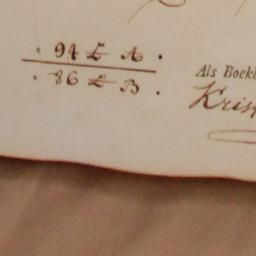 94 £ A.
86 £ B.
Als Boekh
Kris